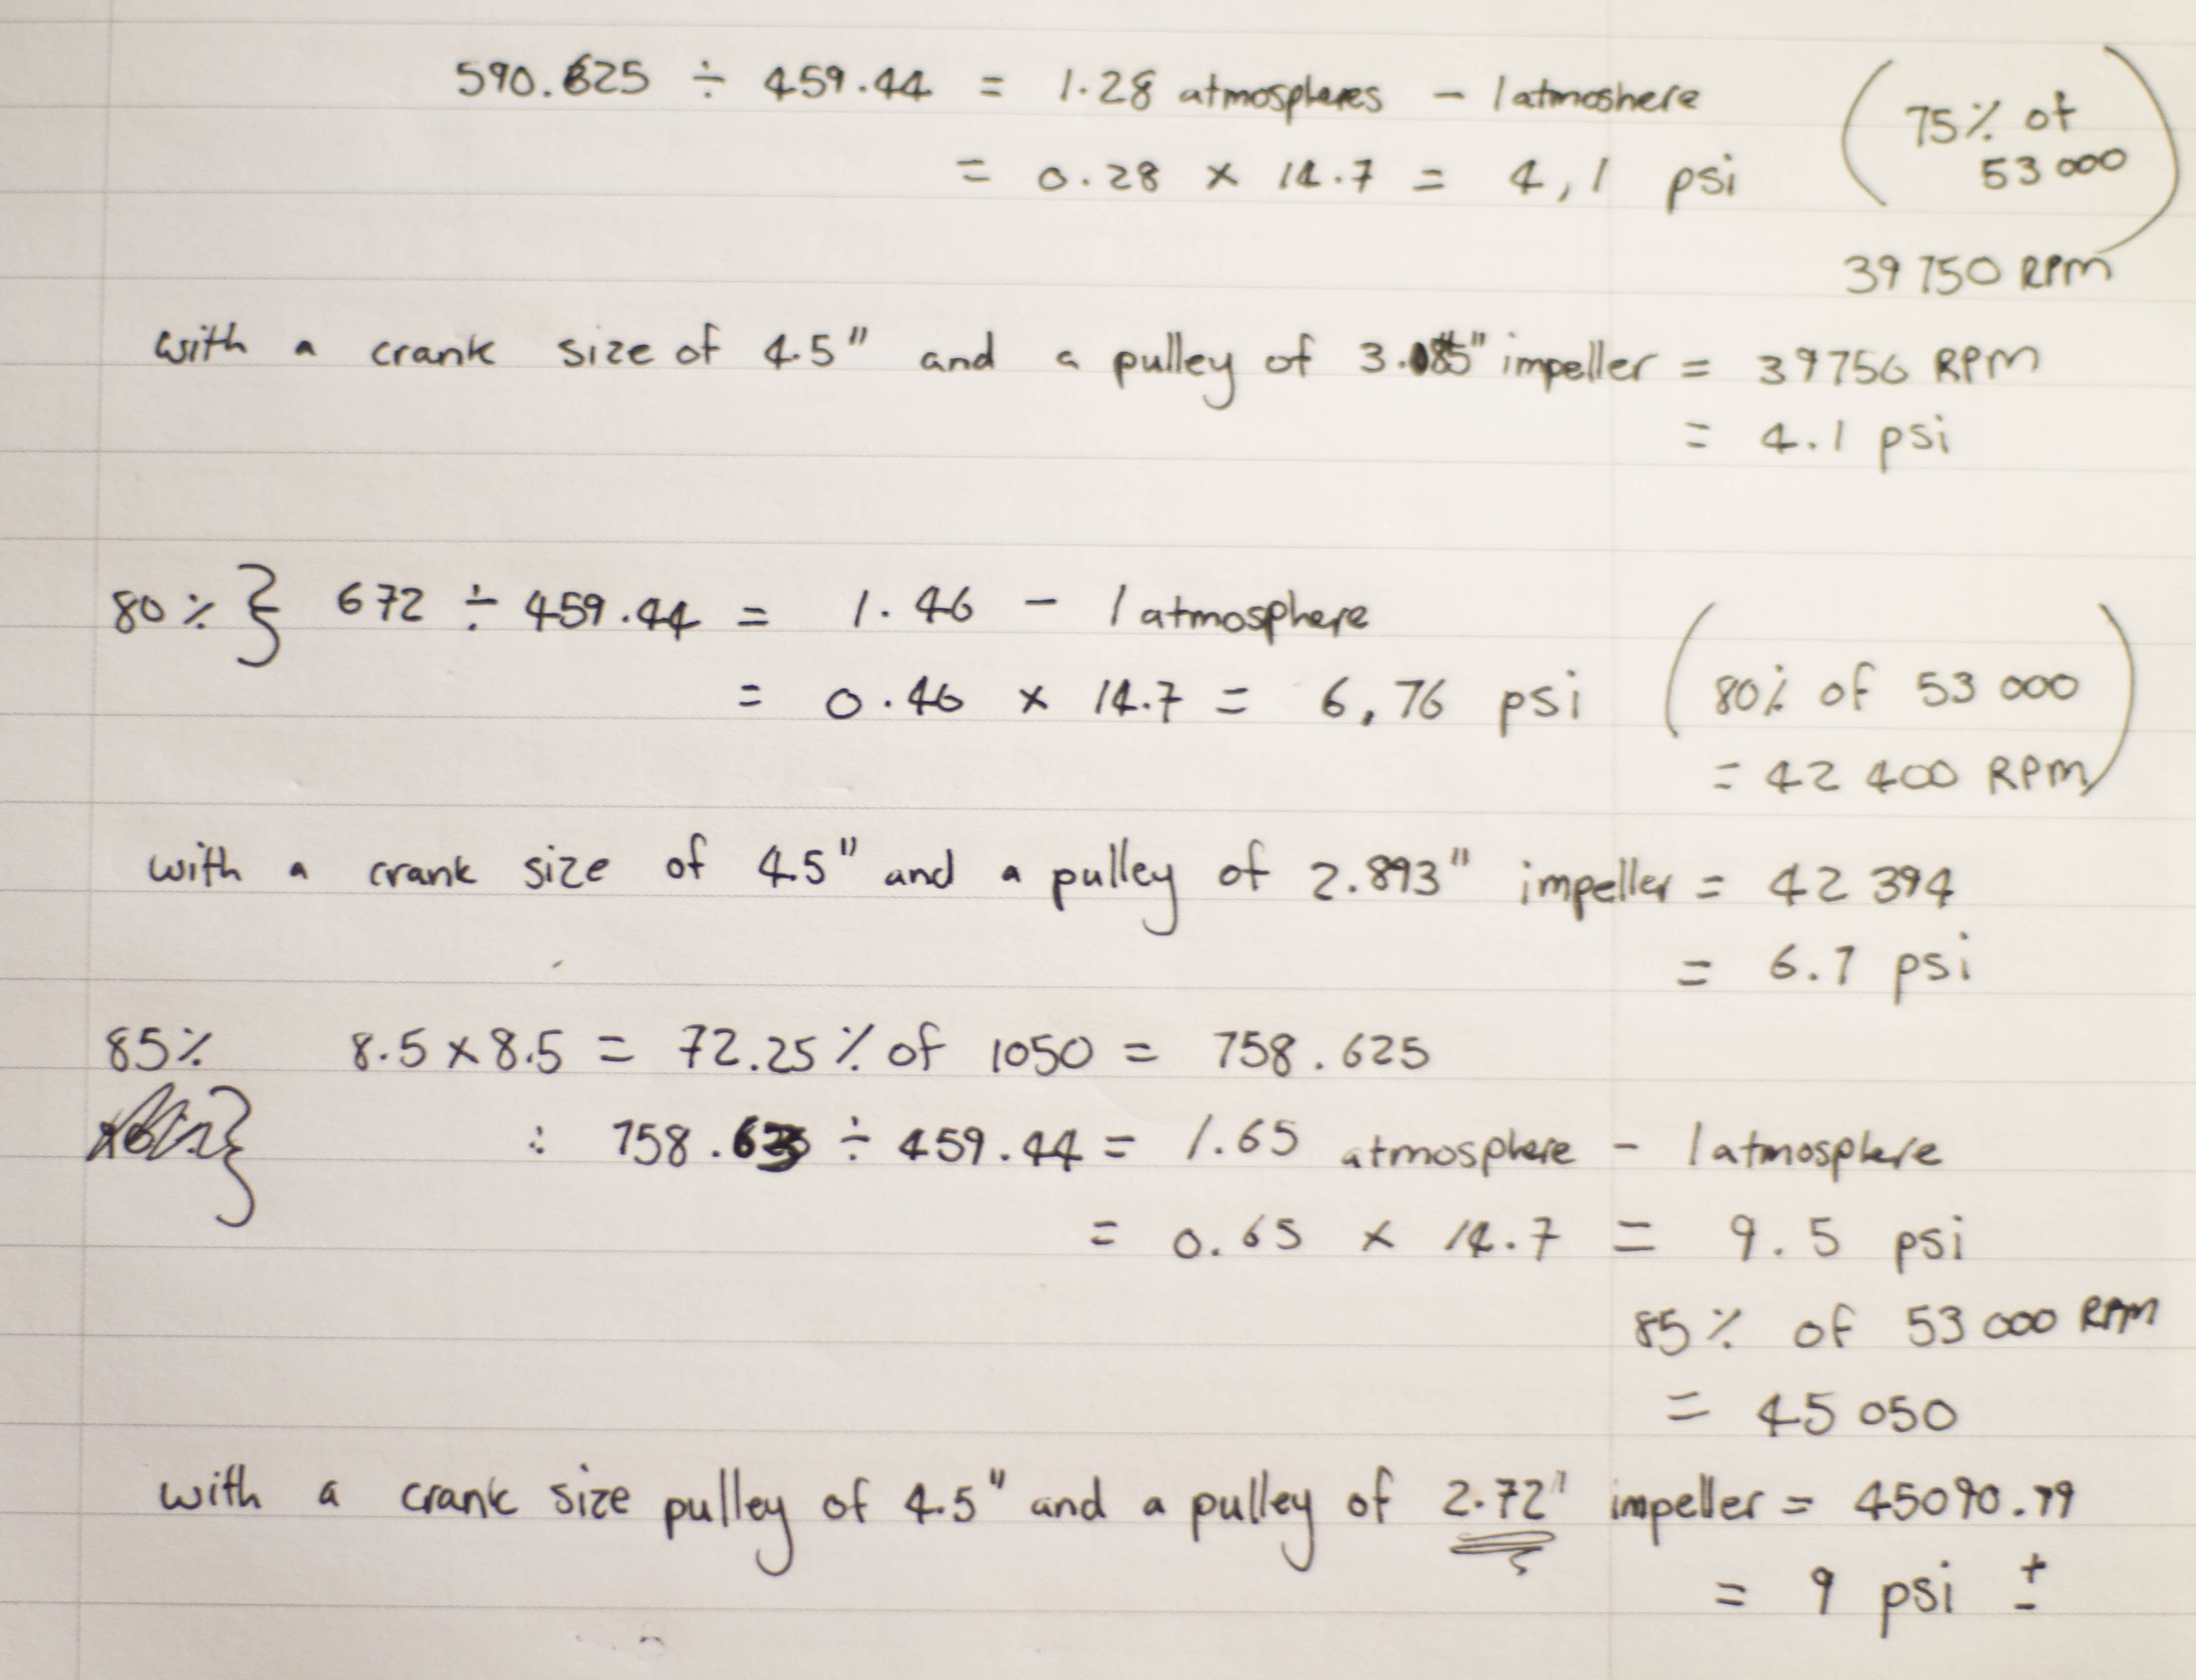 590.625 ÷ 459.44 = 1.28 atmospheres - 1 atmoshere
(75% of
53 000)
= 0.28 x 14.7 = 4,1 psi
39 750 RPM
with a crank size of 4.5" and a pulley of 3.085" impeller = 39756 RPM
= 4.1 psi
80% } 672 ÷ 459.44 = 1.46 - 1 atmosphere
= 0.46 x 14.7 = 6,76 psi (80% of 53 000
= 42 400 RPM)
with a crank size of 4.5" and a pulley of 2.893" impeller = 42 394
= 6.7 psi
85% 8.5 x 8.5 = 72.25% of 1050 = 758.625
} : 758.63 ÷ 459.44 = 1.65 atmosphere - 1 atmosphere
= 0.65 x 14.7 = 9.5 psi
85% of 53 000 RPM
= 45 050
with a crank size pulley of 4.5" and a pulley of 2.72" impeller = 45090.79
= 9 psi ±